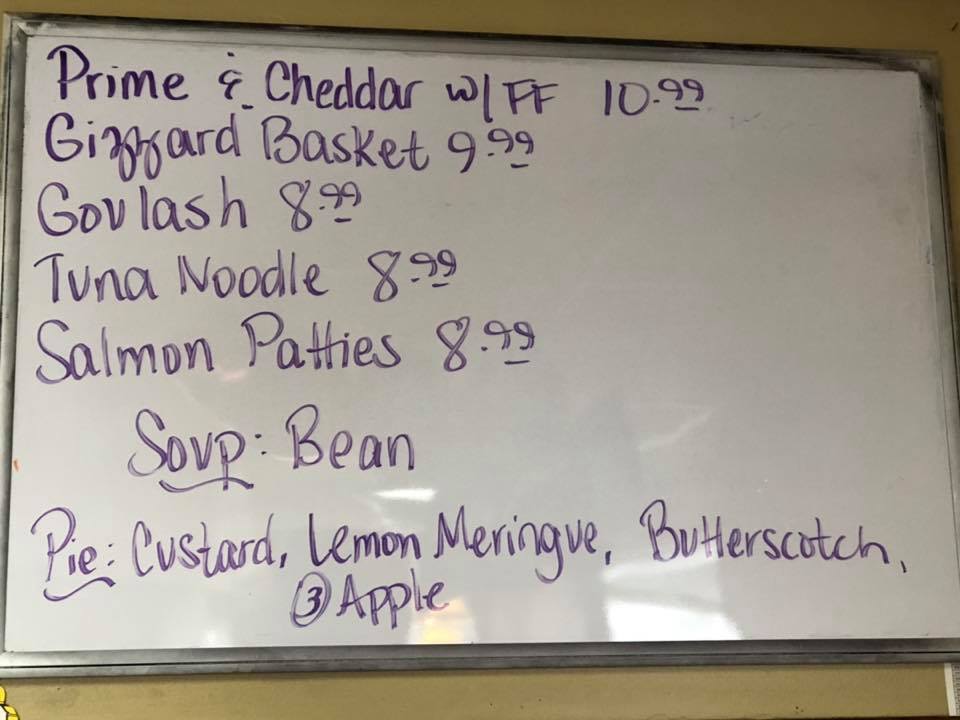 Prime & Cheddar w/ FF 10.99
Gizzard Basket 9.99
Goulash 8.99
Tuna Noodle 8.99
Salmon Patties 8.99
Soup: Bean
Pie: Custard, Lemon Meringue, Butterscotch,
③ Apple